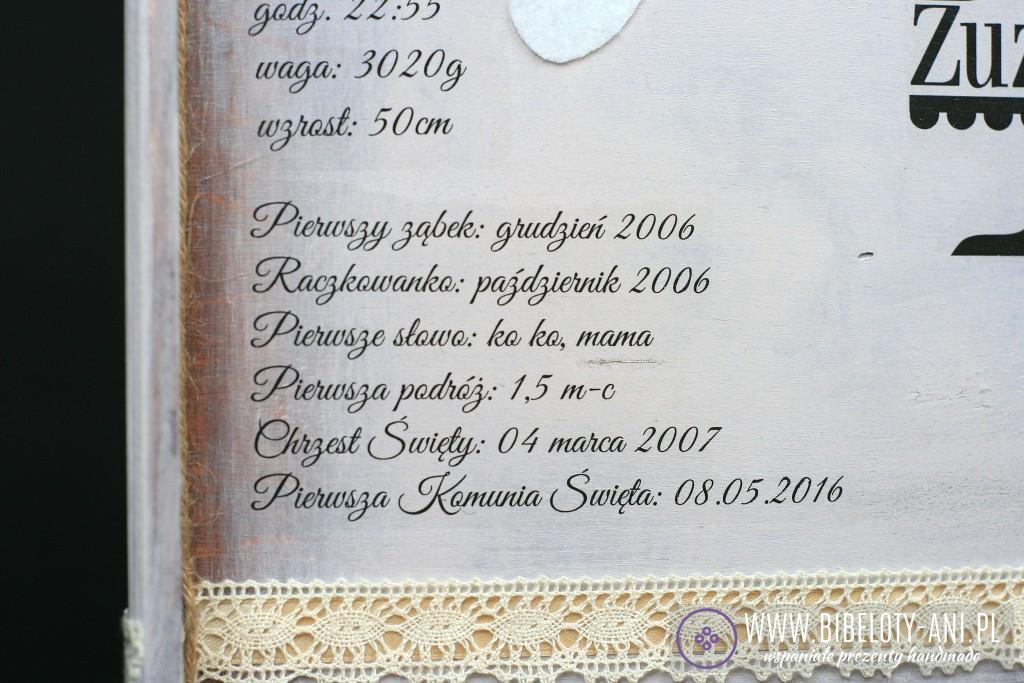 godz. 22:55
waga: 3020g
wzrost: 50cm
Zuz
Pierwszy ząbek: grudzień 2006
Raczkowanko: październik 2006
Pierwsze słowo: ko ko, mama
Pierwsza podróż: 1,5 m-c
Chrzest Święty: 04 marca 2007
Pierwsza Komunia Święta: 08.05.2016
WWW.BIBELOTY-ANI.PL
wspaniałe prezenty handmade